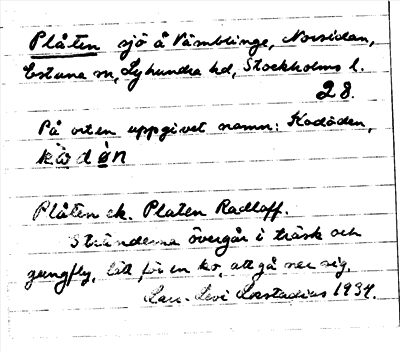 Plåten sjö å Vämblinge, Norsidan,
Estuna sn, Lyhundra hd, Stockholms l.
28.
På orten uppgivet namn: Kodöden,
ködön
Plåten ek. Platen Radloff.
Stränderna övergår i träsk och
gungfly, lätt för en ko, att gå ner sig.
Lars-Levi Læstadius 1934.